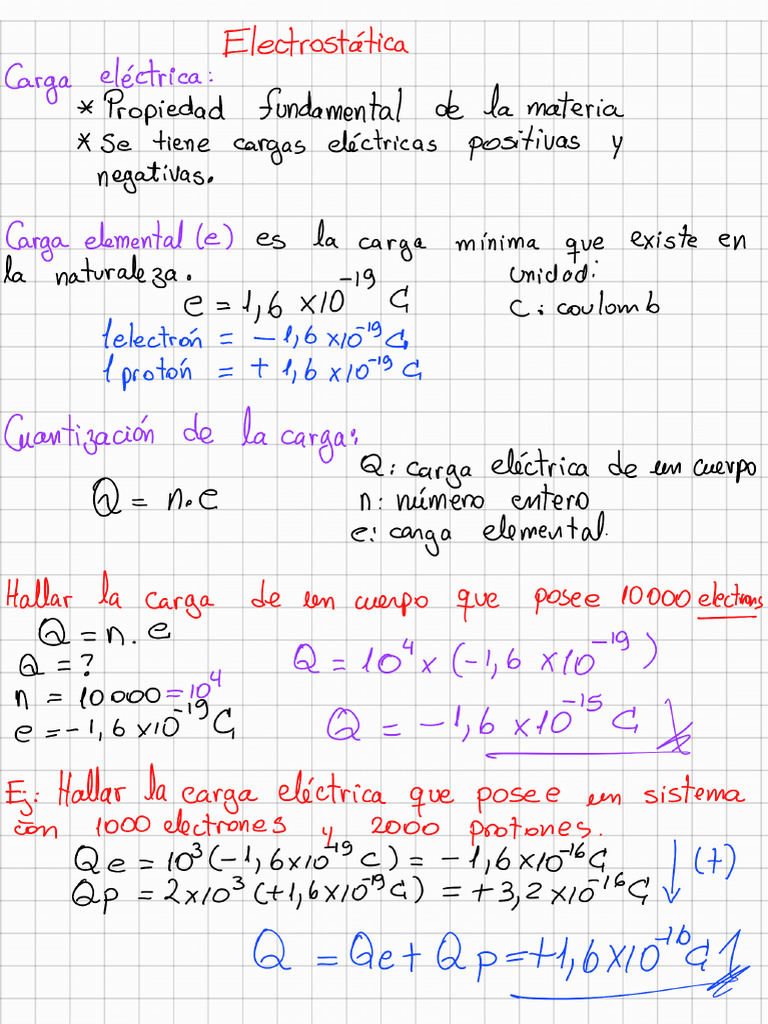 Electrostática
Carga eléctrica:
* Propiedad fundamental de la materia
* Se tiene cargas eléctricas positivas y
negativas.
Carga elemental (e) es la carga mínima que existe en
la naturaleza.
unidad:
e = 1,6 x10⁻¹⁹ C
C: coulomb
1 electrón = -1,6 x10⁻¹⁹ C
1 protón = +1,6 x10⁻¹⁹ C
Cuantización de la carga:
Q: carga eléctrica de un cuerpo
Q = n.e
n: número entero
e: carga elemental.
Hallar la carga de un cuerpo que posee 10000 electrons
Q = n.e
Q = ?
Q = 10⁴ x (-1,6 x10⁻¹⁹)
n = 10000 = 10⁴
e = -1,6 x10⁻¹⁹ C
Q = -1,6 x10⁻¹⁵ C
Ej: Hallar la carga eléctrica que posee un sistema
con 1000 electrones y 2000 protones.
Qe = 10³ (-1,6x10⁻¹⁹ C) = -1,6x10⁻¹⁶ C
(+)
Qp = 2x10³ (+1,6x10⁻¹⁹ C) = +3,2x10⁻¹⁶ C
Q = Qe + Qp = +1,6x10⁻¹⁶ C